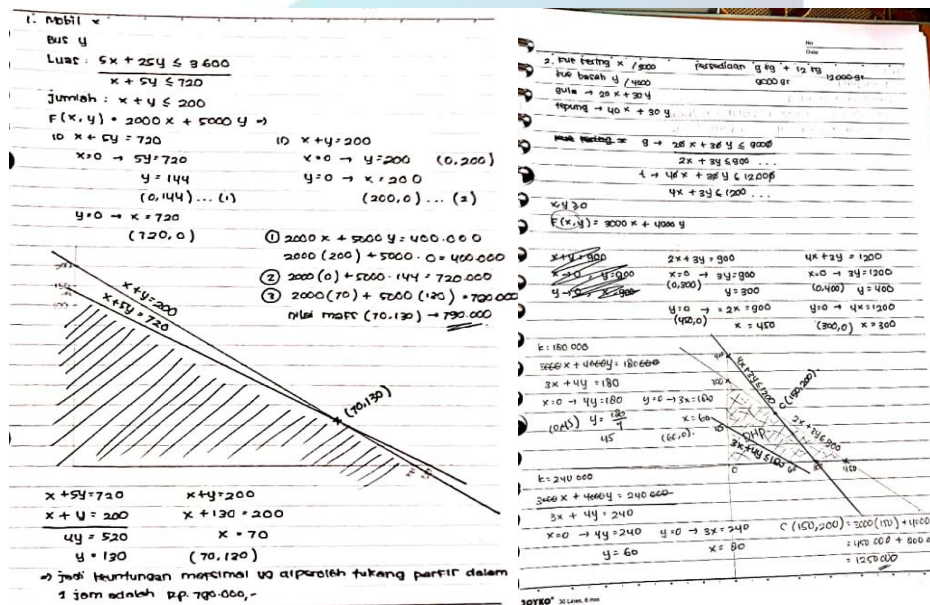 1. Mobil x
Bus y
Luas : 5x + 25y ≤ 3600
x + 5y ≤ 720
Jumlah : x + y ≤ 200
F(x,y) = 2000 x + 5000 y =>
1) x + 5y = 720
x=0 → 5y = 720
y = 144
(0,144) ... (1)
y=0 → x = 720
(720,0)
1) x+y=200
x=0 → y=200 (0,200)
y=0 → x=200
(200,0) ... (2)
① 2000 x + 5000 y = 400.000
2000 (200) + 5000 · 0 = 400.000
② 2000 (0) + 5000 · 144 = 720.000
③ 2000 (70) + 5000 (130) = 790.000
nilai maks (70,130) → 790.000
x+y=200
x+5y=720
(70,130)
x + 5y = 720
x + y = 200
4y = 520
y = 130
x+y=200
x + 130 = 200
x = 70
(70,130)
=> jadi keuntungan maksimal yg diperoleh tukang parkir dalam
1 jam adalah Rp. 790.000,-
No
Date
2. kue kering x / 3000
kue basah y / 4000
gula → 20 x + 30 y
tepung → 40 x + 30 y
persediaan 9 kg + 12 kg
9000 gr 12000 gr
g → 20 x + 30 y ≤ 9000
2x + 3y ≤ 900 ...
t → 40 x + 30 y ≤ 12000
4x + 3y ≤ 1200 ...
x,y ≥ 0
F(x,y) = 3000 x + 4000 y
x+y = 900
x → 0, y = 900
y → 0, x = 900
2x + 3y = 900
x=0 → 3y = 900
(0,300) y = 300
y=0 → = 2x = 900
(450,0) x = 450
4x + 3y = 1200
x=0 → 3y = 1200
(0,400) y = 400
y=0 → 4x = 1200
(300,0) x = 300
k = 180 000
3000 x + 4000 y = 180 000
3x + 4y = 180
x=0 → 4y = 180 y=0 → 3x = 180
(0,45) y = 180/4 x = 60
45 (60,0)
400
300
4x+3y≤1200
C (150,200)
2x+3y≤900
DHP
3x+4y≤180
0
60
300
450
k = 240 000
3000 x + 4000 y = 240 000
3x + 4y = 240
x=0 → 4y = 240 y=0 → 3x = 240
y = 60 x = 80
C (150,200) = 3000 (150) + 4000
= 450 000 + 800 0
= 1250 000
JOYKO® 30 Lines, 6 mm